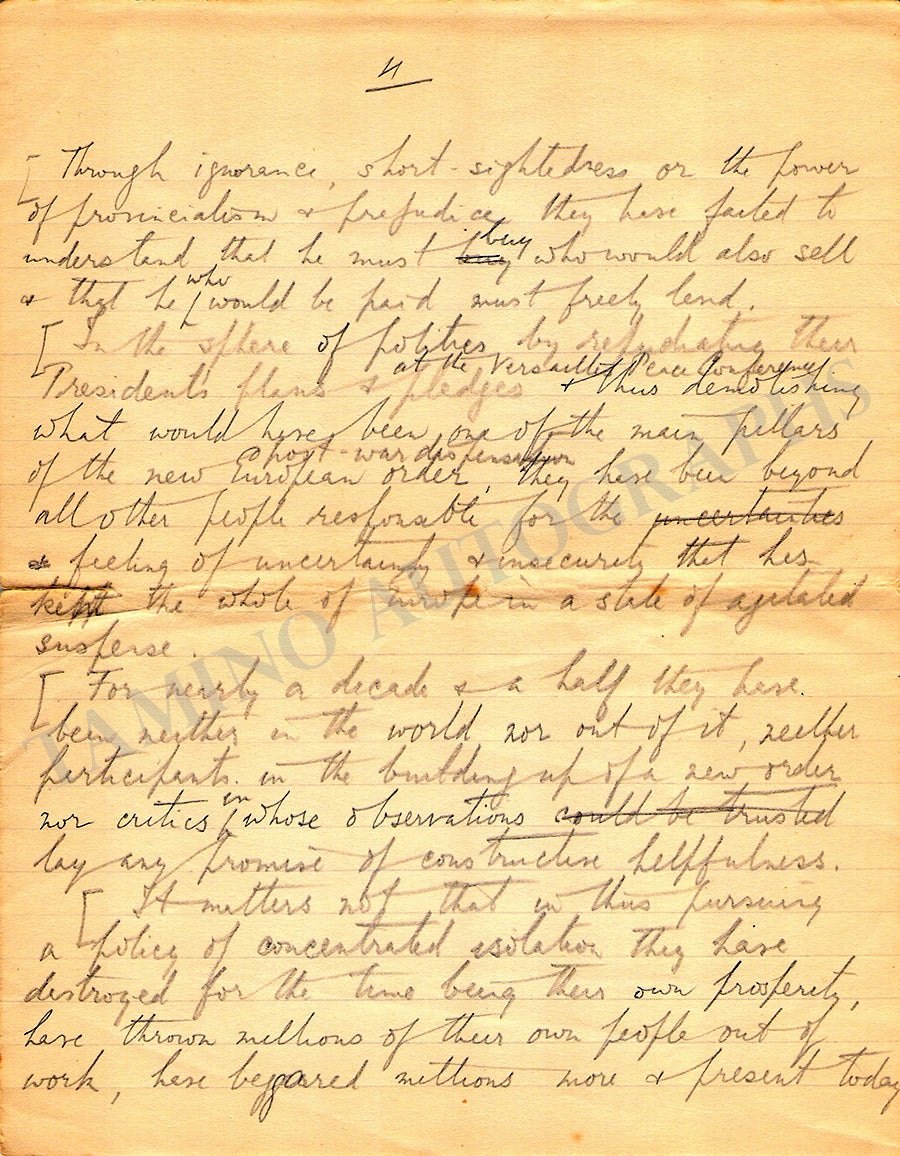 4
[ Through ignorance, short-sightedness or the power
of provincialism & prejudice they have failed to
buy
understand that he must buy who would also sell
who
& that he would be paid must freely lend.
[ In the sphere of politics by repudiating their
at the Versailles Peace Conference
Presidents plans & pledges & thus demolishing
what would have been one of the main pillars
post-war dispensation
of the new European order, they have been beyond
all other people responsable for the uncertainties
& feeling of uncertainty & insecurity that has
kept the whole of Europe in a state of agitated
suspense.
[ For nearly a decade & a half they have
been neither in the world nor out of it, neither
participants in the building up of a new order
in
nor critics whose observations could be trusted
lay any promise of constructive helpfulness.
[ It matters not that in thus pursuing
a policy of concentrated isolation they have
destroyed for the time being their own prosperity,
have thrown millions of their own people out of
work, have beggared millions more & present today
TAMINO AUTOGRAPHS